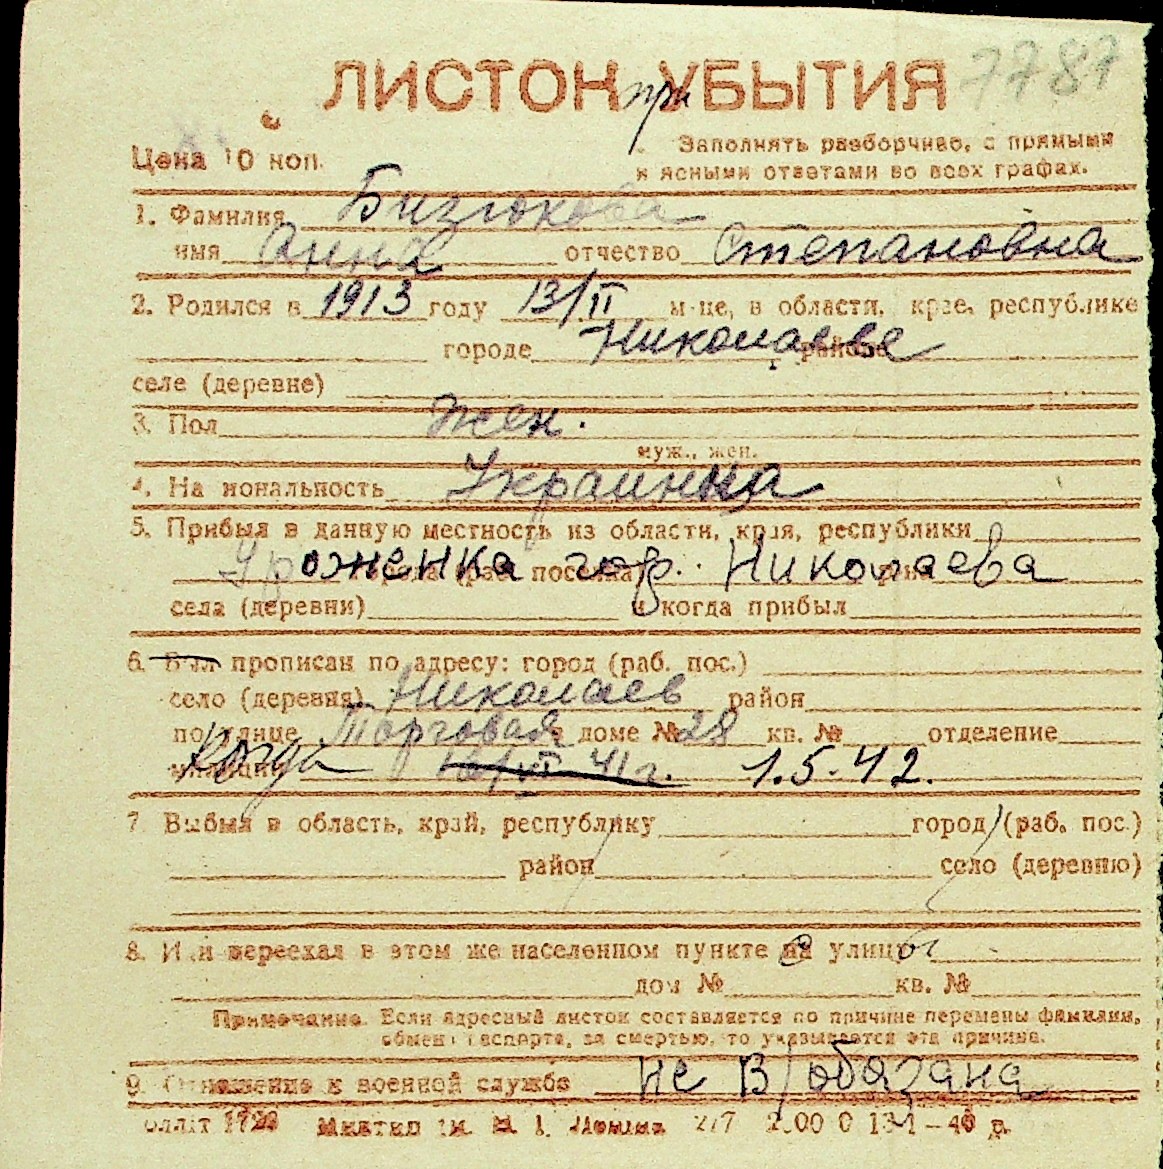 7787
ЛИСТОК при УБЫТИЯ
Цена 10 коп.
Заполнять разборчиво, с прямыми
и ясными ответами во всех графах.
1. Фамилия Бизюкова
имя Анна отчество Степановна
2. Родился в 1913 году 13/II м-це, в области, крае, республике
городе Николаеве районе
селе (деревне)
3. Пол жен.
муж., жен.
4. Национальность Украинка
5. Прибыл в данную местность из области, края, республики
Уроженка гор. Николаева
села (деревни) и когда прибыл
6. Был прописан по адресу: город (раб. пос.)
село (деревня) Николаев район
по улице Торговая доме № 28 кв. № отделение
милиции Когда 16/VI 41 г. 1.5.42.
7. Выбыл в область, край, республику город (раб. пос.)
район село (деревню)
8. Или переехал в этом же населенном пункте на улицу
дом № кв. №
Примечание. Если адресный листок составляется по причине перемены фамилии,
обмена паспорта, за смертью, то указывается эта причина.
9. Отношение к военной службе не в/обязана